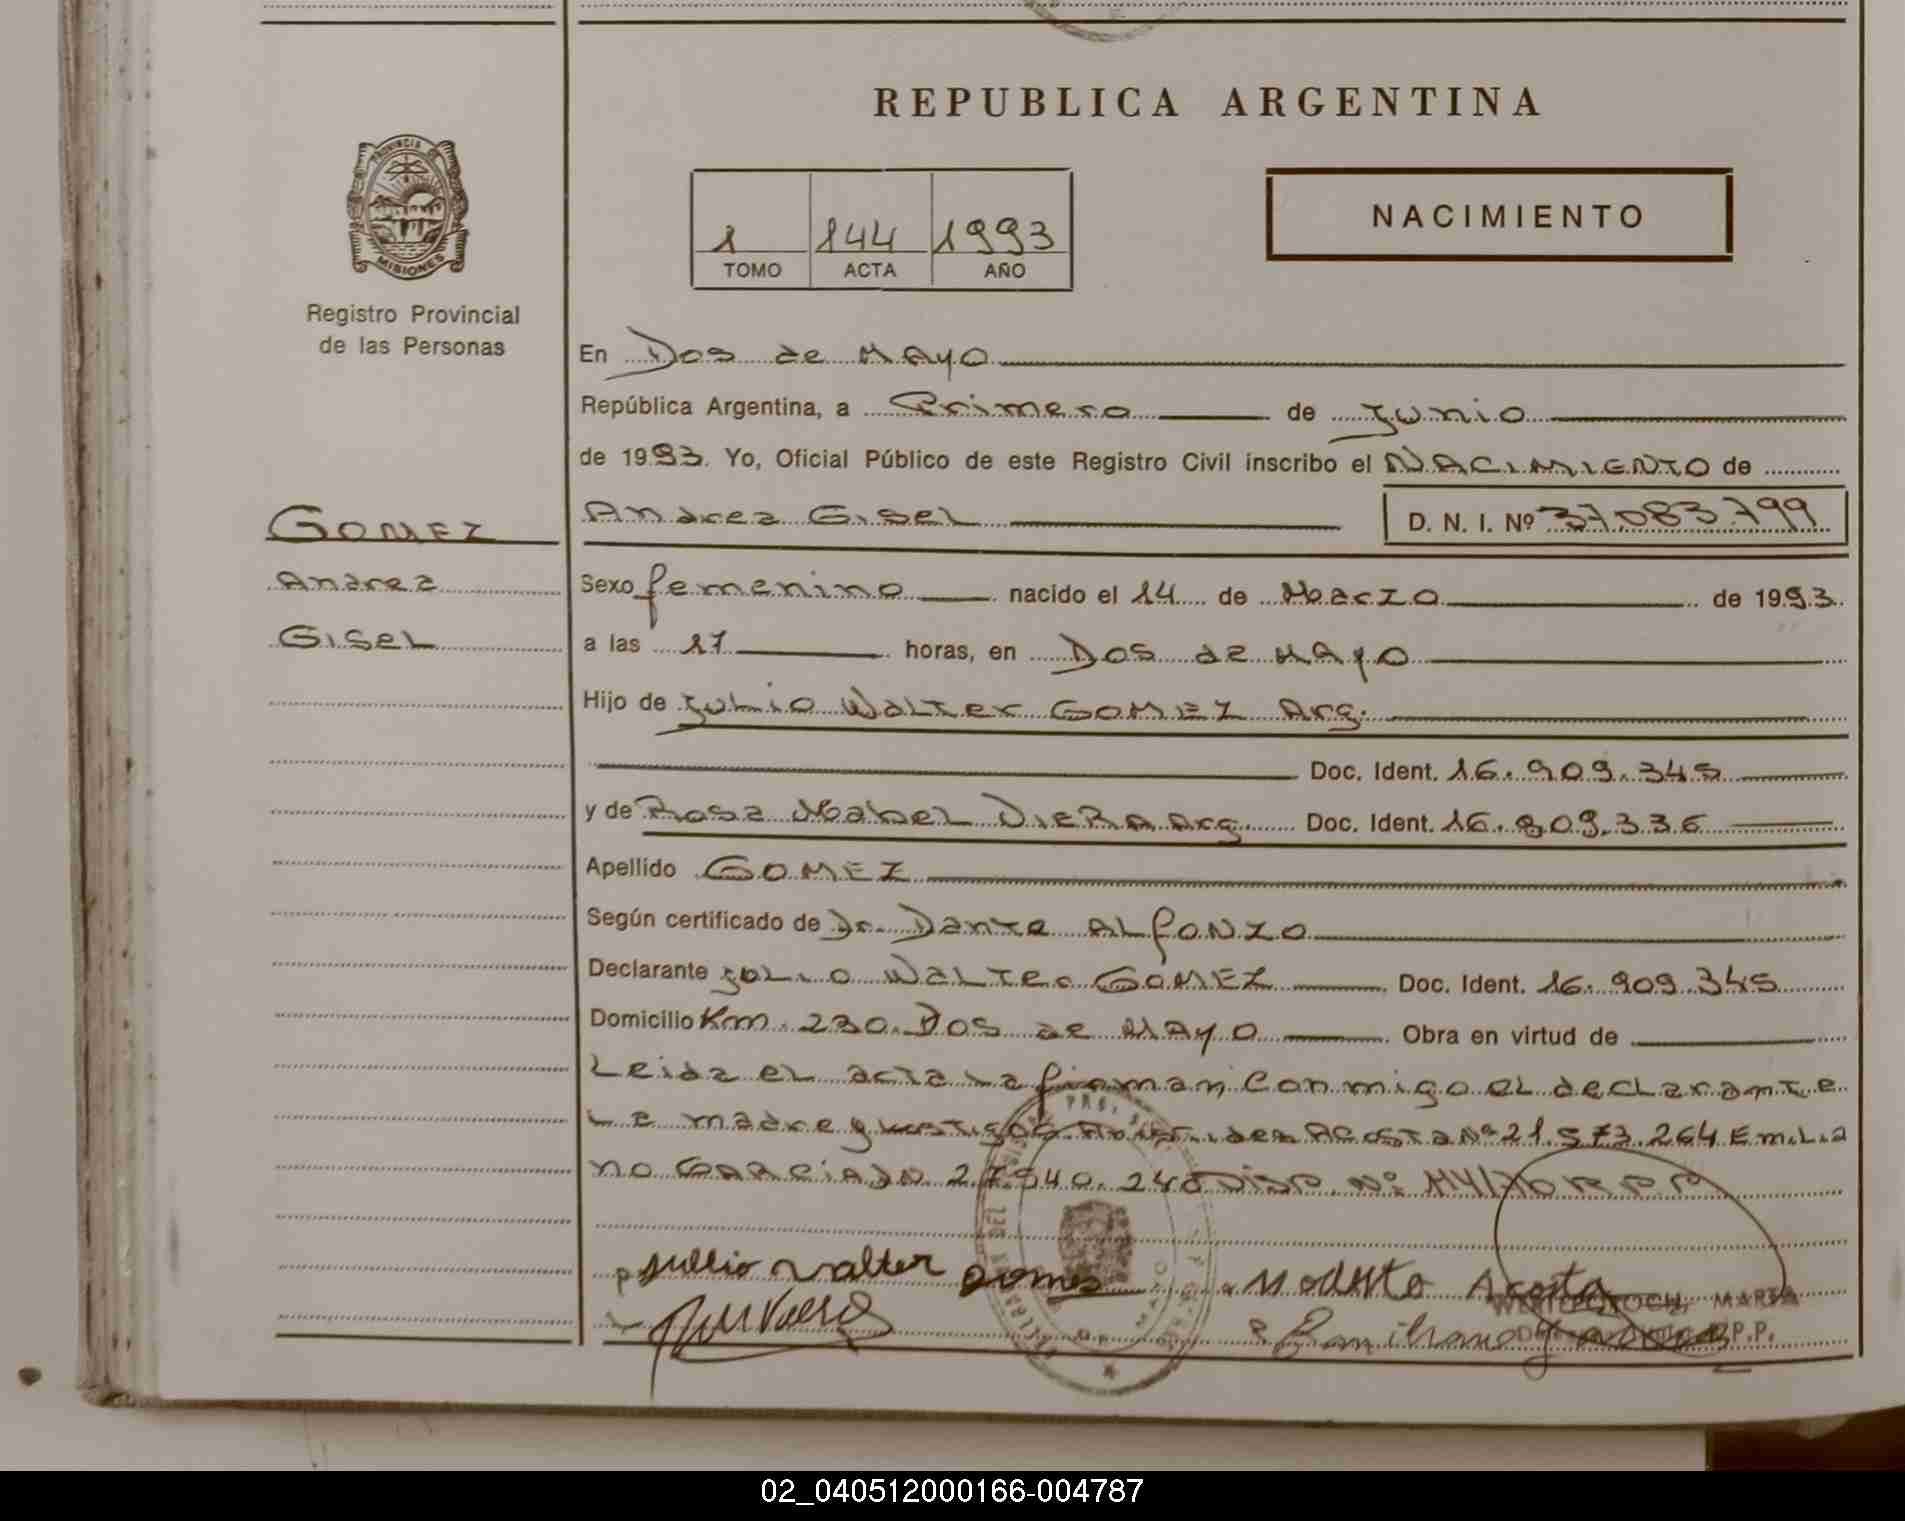 REPUBLICA ARGENTINA
PROVINCIA DE
MISIONES
Registro Provincial
de las Personas
1 144 1993
TOMO ACTA AÑO
NACIMIENTO
En Dos de Mayo
República Argentina, a Primero de Junio
de 1993. Yo, Oficial Público de este Registro Civil inscribo el NACIMIENTO de
Andrea Gisel D. N. I. Nº 37083799
GOMEZ
Andrea
Gisel
Sexo femenino nacido el 14 de Marzo de 1993
a las 17 horas, en Dos de Mayo
Hijo de Julio Walter GOMEZ Arg.
Doc. Ident. 16.909.345
y de Rosa Mabel VIERA Arg. Doc. Ident. 16.809.336
Apellido GOMEZ
Según certificado de Dr. Dante ALfONZO
Declarante Julio Walter GOMEZ Doc. Ident. 16.909.345
Domicilio Km. 230. Dos de Mayo Obra en virtud de
Leida el acta la firman conmigo el declarante
La madre y testigos ACOSTA Nº 21.573.264 Emilia
no GARCIA DN 27.540.248 Disp. Nº 114/70 R.P.P
Jullio Walter Gomes Modesto Acosta
MARTA
R.P.P.
02_040512000166-004787